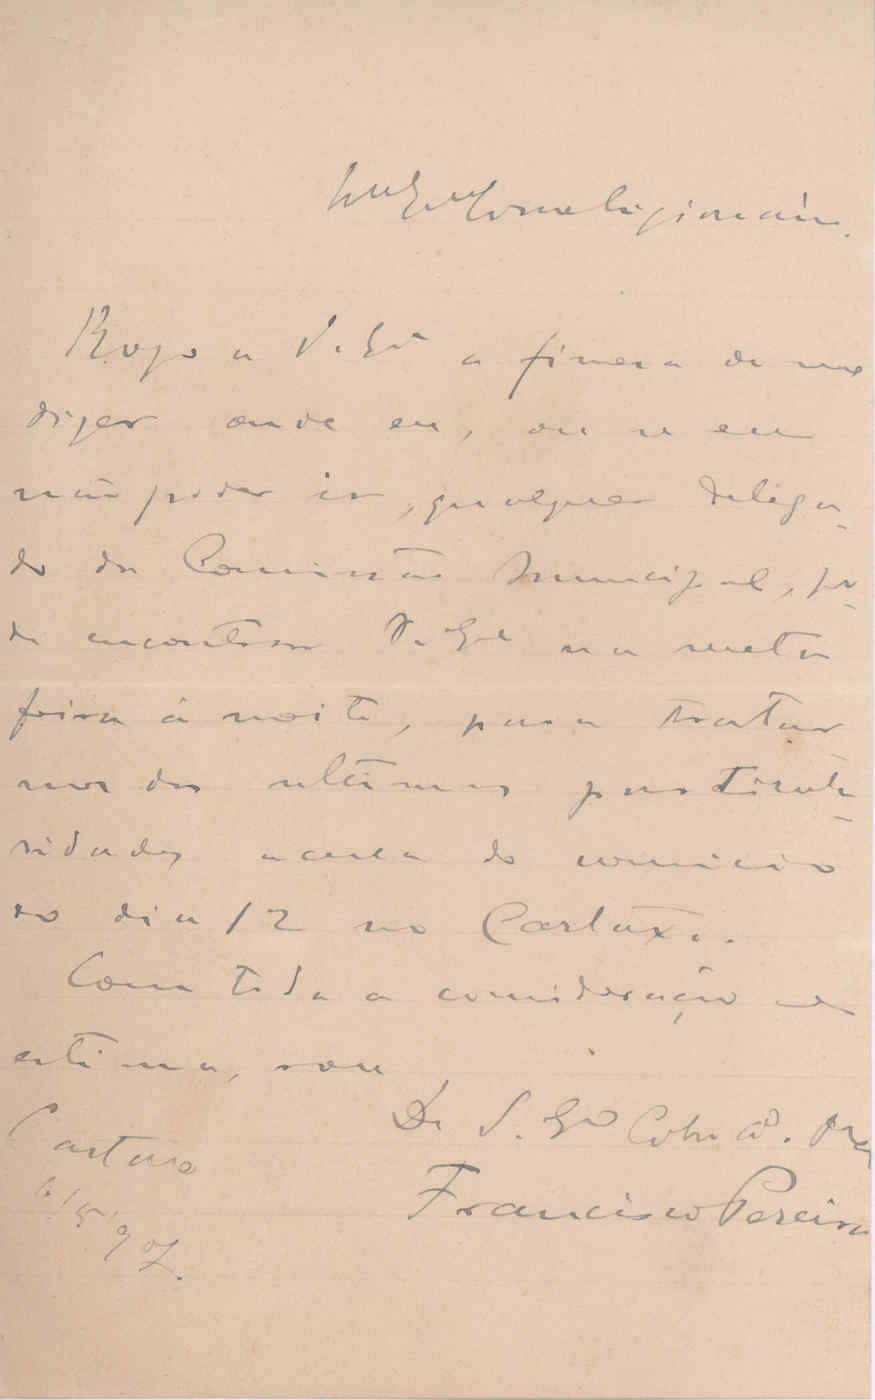 Illmo Exmo Correligionário.
Rogo a V. Exª a fineza de me
dizer onde eu, ou se eu
não poder ir, qualquer delega-
do da Comissão Municipal, po-
de encontrar V. Exª na sexta
feira á noite, para tratar
mos das ultimas particula-
ridades acerca do comicio
do dia 12 no Cartaxo.
Com toda a consideração e
estima, sou
De V. Exª
Francisco Pereira
Cartaxo
6/5/907.